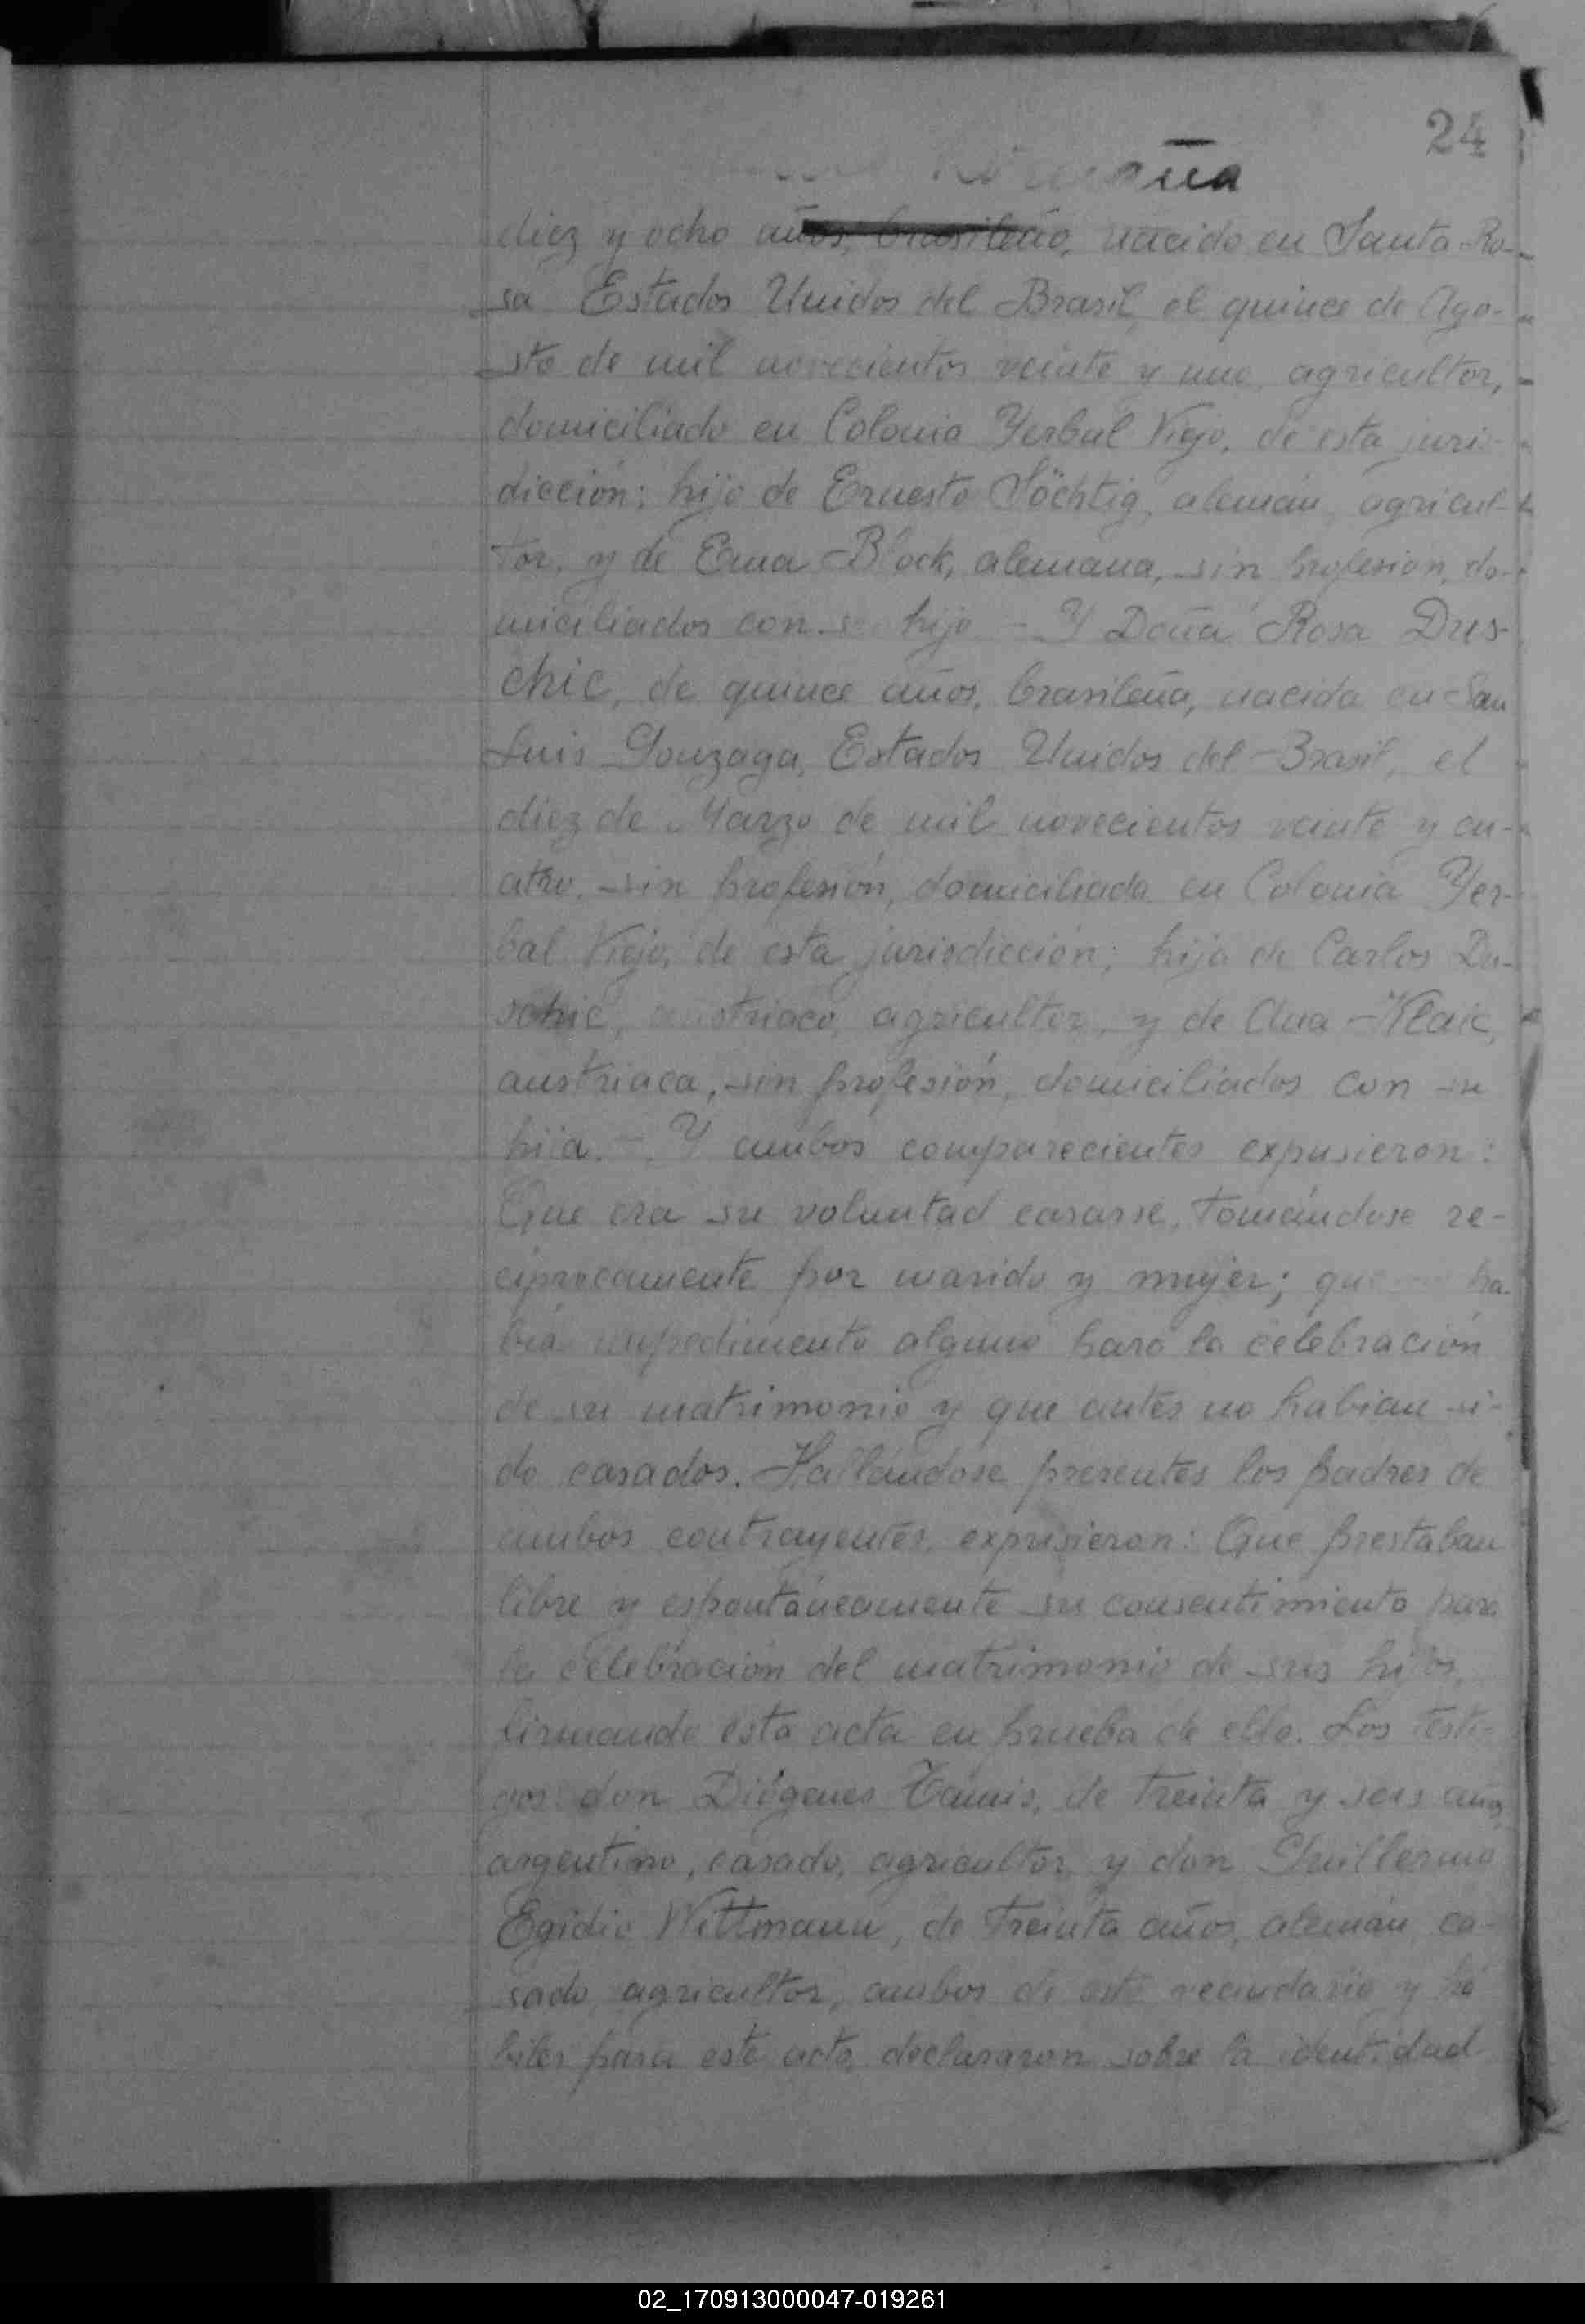 24
diez y ocho años, brasileño, nacido en Santa Ro-
sa Estados Unidos del Brasil, el quince de Ago-
sto de mil novecientos veinte y uno, agricultor,
domiciliado en Colonia Yerbal Viejo, de esta juris-
dicción; hijo de Ernesto Söchtig, alemán, agricul-
tor, y de Ema Block, alemana, sin profesión, do-
miciliados con su hijo - Y Doña Rosa Dus-
chic, de quince años, brasileña, nacida en San
Luis Gonzaga, Estados Unidos del Brasil, el
diez de Marzo de mil novecientos veinte y cu-
atro, sin profesión, domiciliada en Colonia Yer-
bal Viejo, de esta jurisdicción; hija de Carlos Du-
schic, austriaco, agricultor, y de Ana Klaic,
austriaca, sin profesión, domiciliados con su
hija. - Y ambos comparecientes expusieron:
Que era su voluntad casarse, tomándose re-
ciprocamente por marido y mujer; que ha-
bía impedimento alguno para la celebración
de su matrimonio y que antes no habian si-
do casados. Hallándose presentes los padres de
ambos contrayentes, expusieron: Que prestaban
libre y espontáneamente su consentimiento para
la celebración del matrimonio de sus hijos,
firmando esta acta en prueba de ello. Los testi-
gos don Diógenes Tamis, de treinta y seis años,
argentino, casado, agricultor y don Guillermo
Egidio Wittmann, de treinta años, alemán, ca-
sado, agricultor, ambos de este vecindario y há
biles para este acto, declararon sobre la identidad
02_170913000047-019261